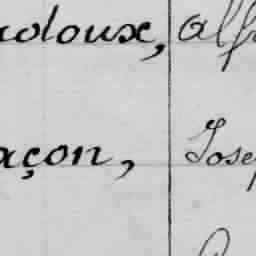 coloux, Alf
açon, Jose